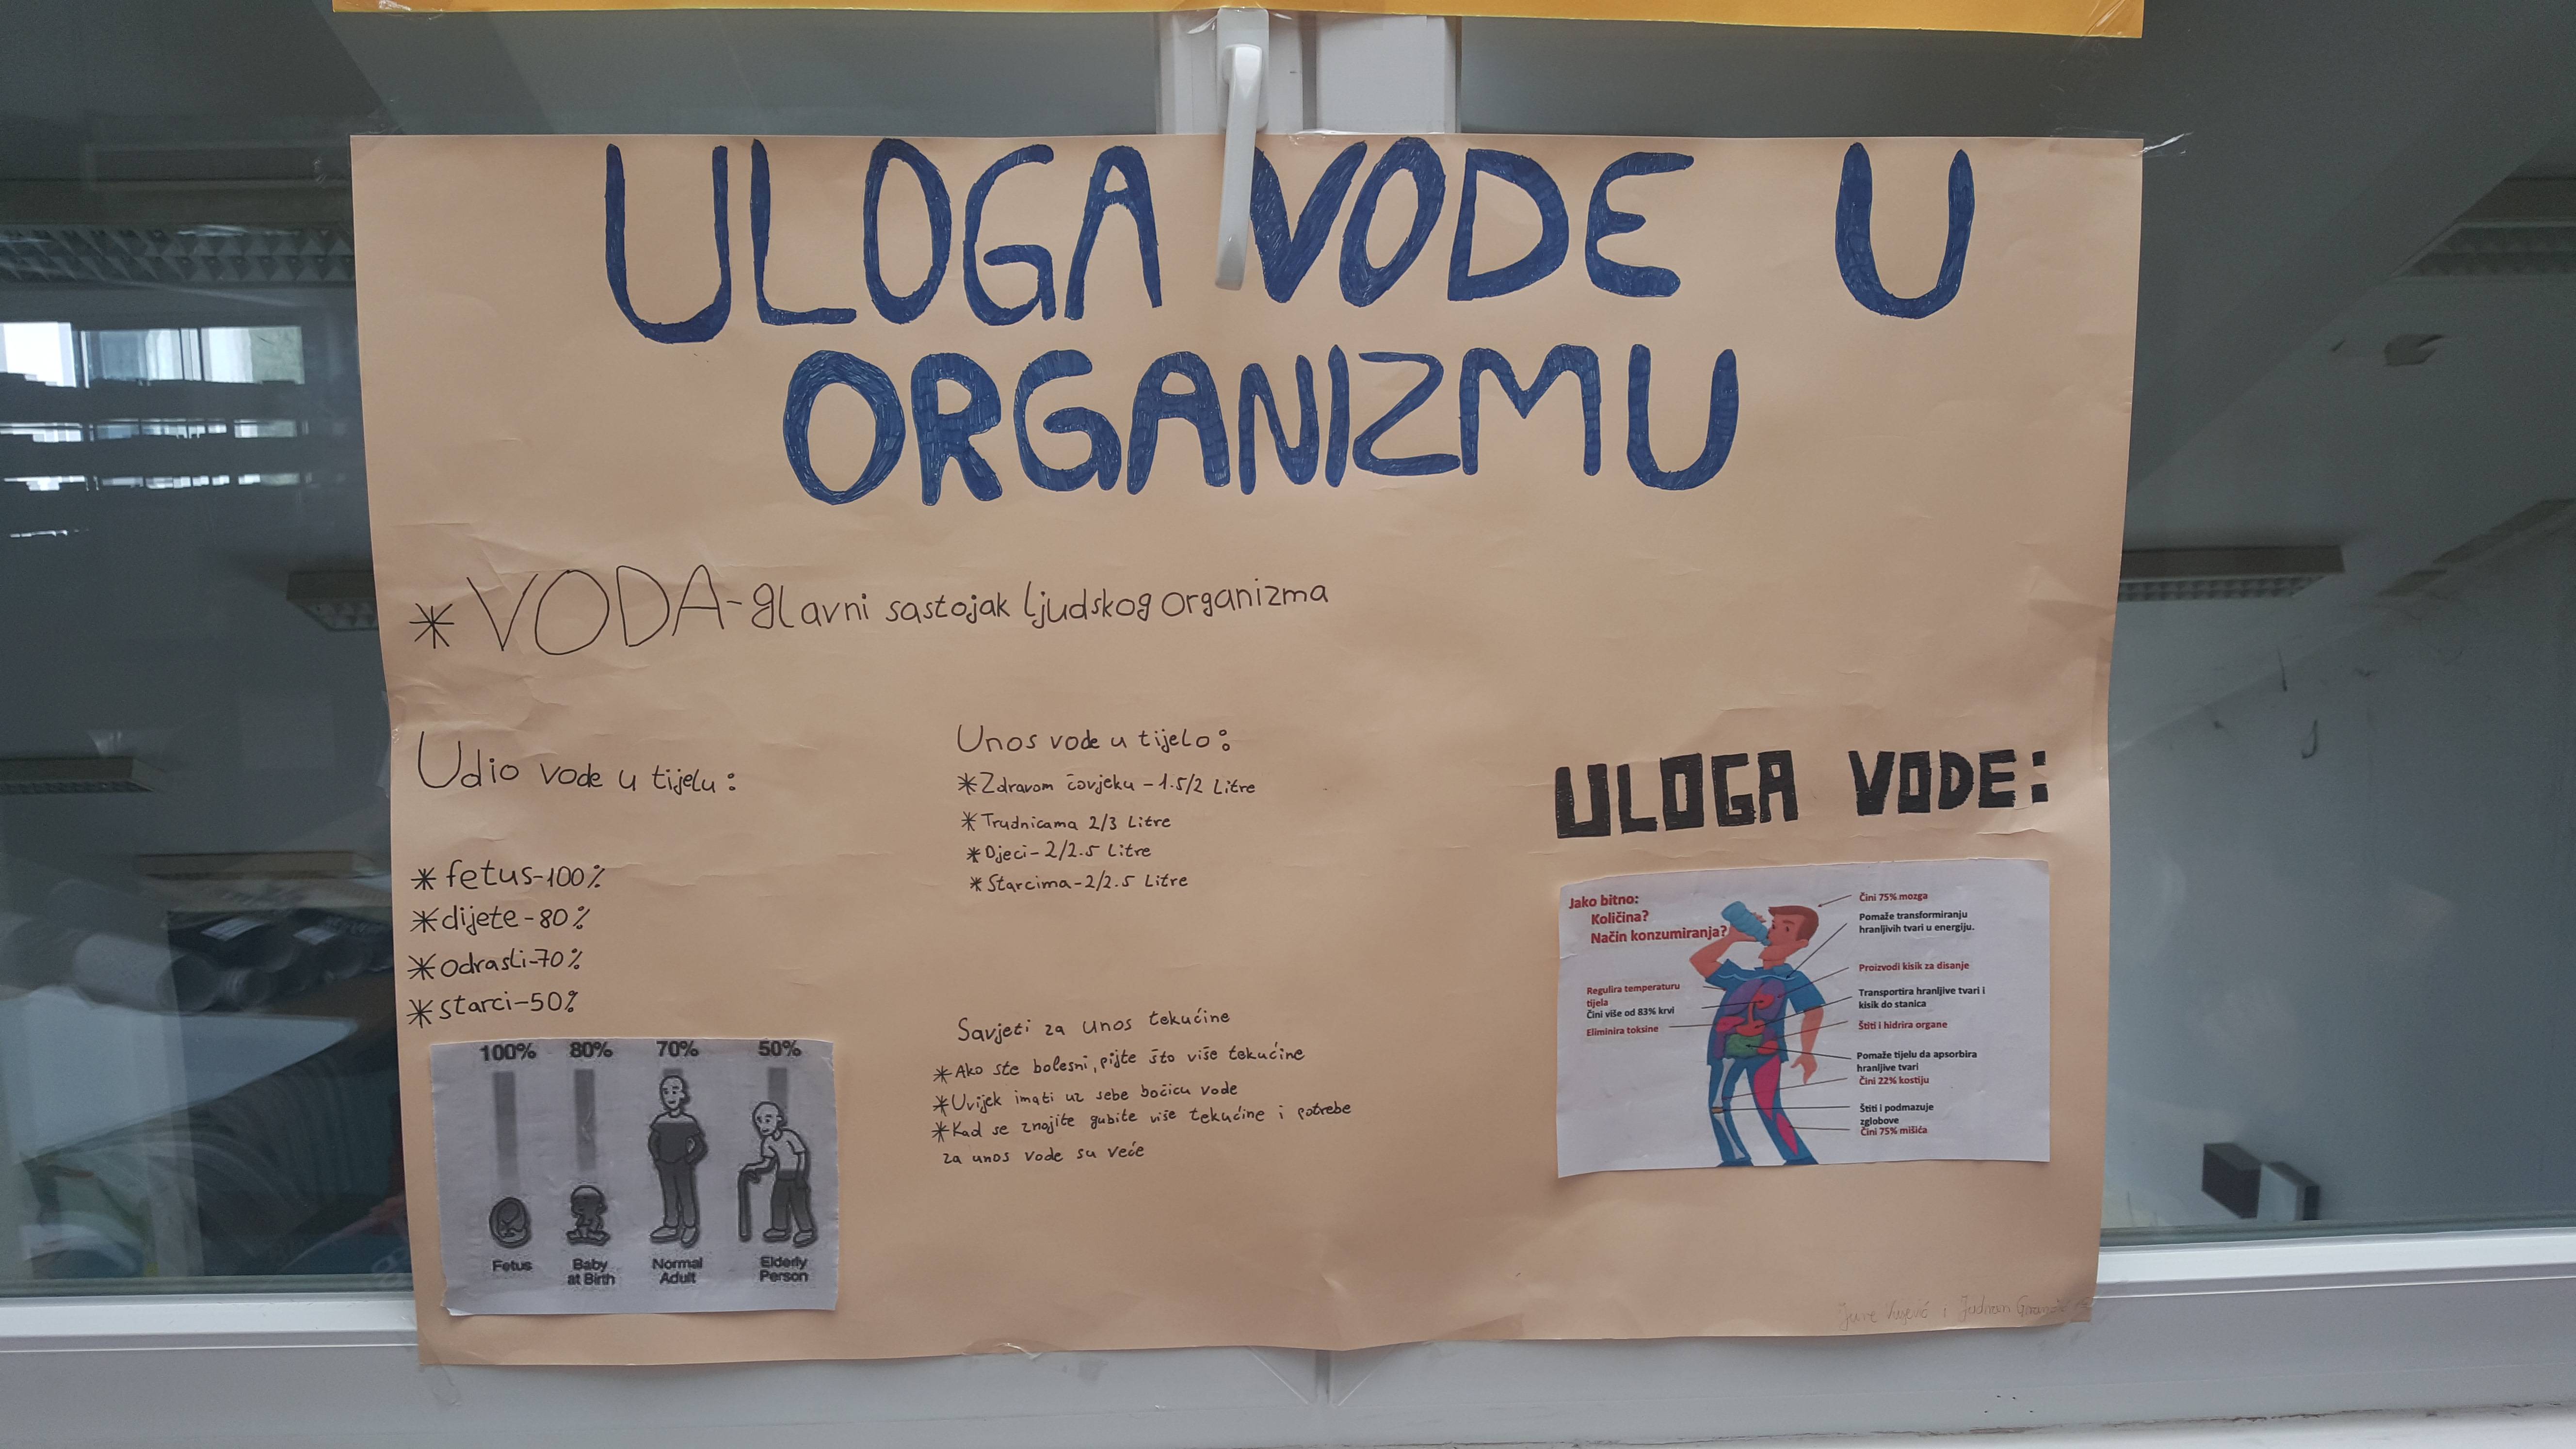 ULOGA VODE U
ORGANIZMU
* VODA-glavni sastojak ljudskog organizma
Udio vode u tijelu:
* fetus-100%
* dijete-80%
* odrasli-70%
* starci-50%
100% 80% 70% 50%
Fetus Baby at Birth Normal Adult Elderly Person
Unos vode u tijelo:
* Zdravom čovjeku - 1.5/2 Litre
* Trudnicama 2/3 Litre
* Djeci- 2/2.5 Litre
* Starcima-2/2.5 Litre
Savjeti za unos tekućine
* Ako ste bolesni, pijte što više tekućine
* Uvijek imati uz sebe bočicu vode
* Kad se znojite gubite više tekućine i potrebe
za unos vode su veće
ULOGA VODE:
Jako bitno:
Količina?
Način konzumiranja?
Regulira temperaturu
tijela
Čini više od 83% krvi
Eliminira toksine
Čini 75% mozga
Pomaže transformiranju
hranljivih tvari u energiju.
Proizvodi kisik za disanje
Transportira hranljive tvari i
kisik do stanica
Štiti i hidrira organe
Pomaže tijelu da apsorbira
hranljive tvari
Čini 22% kostiju
Štiti i podmazuje
zglobove
Čini 75% mišića
Jure i